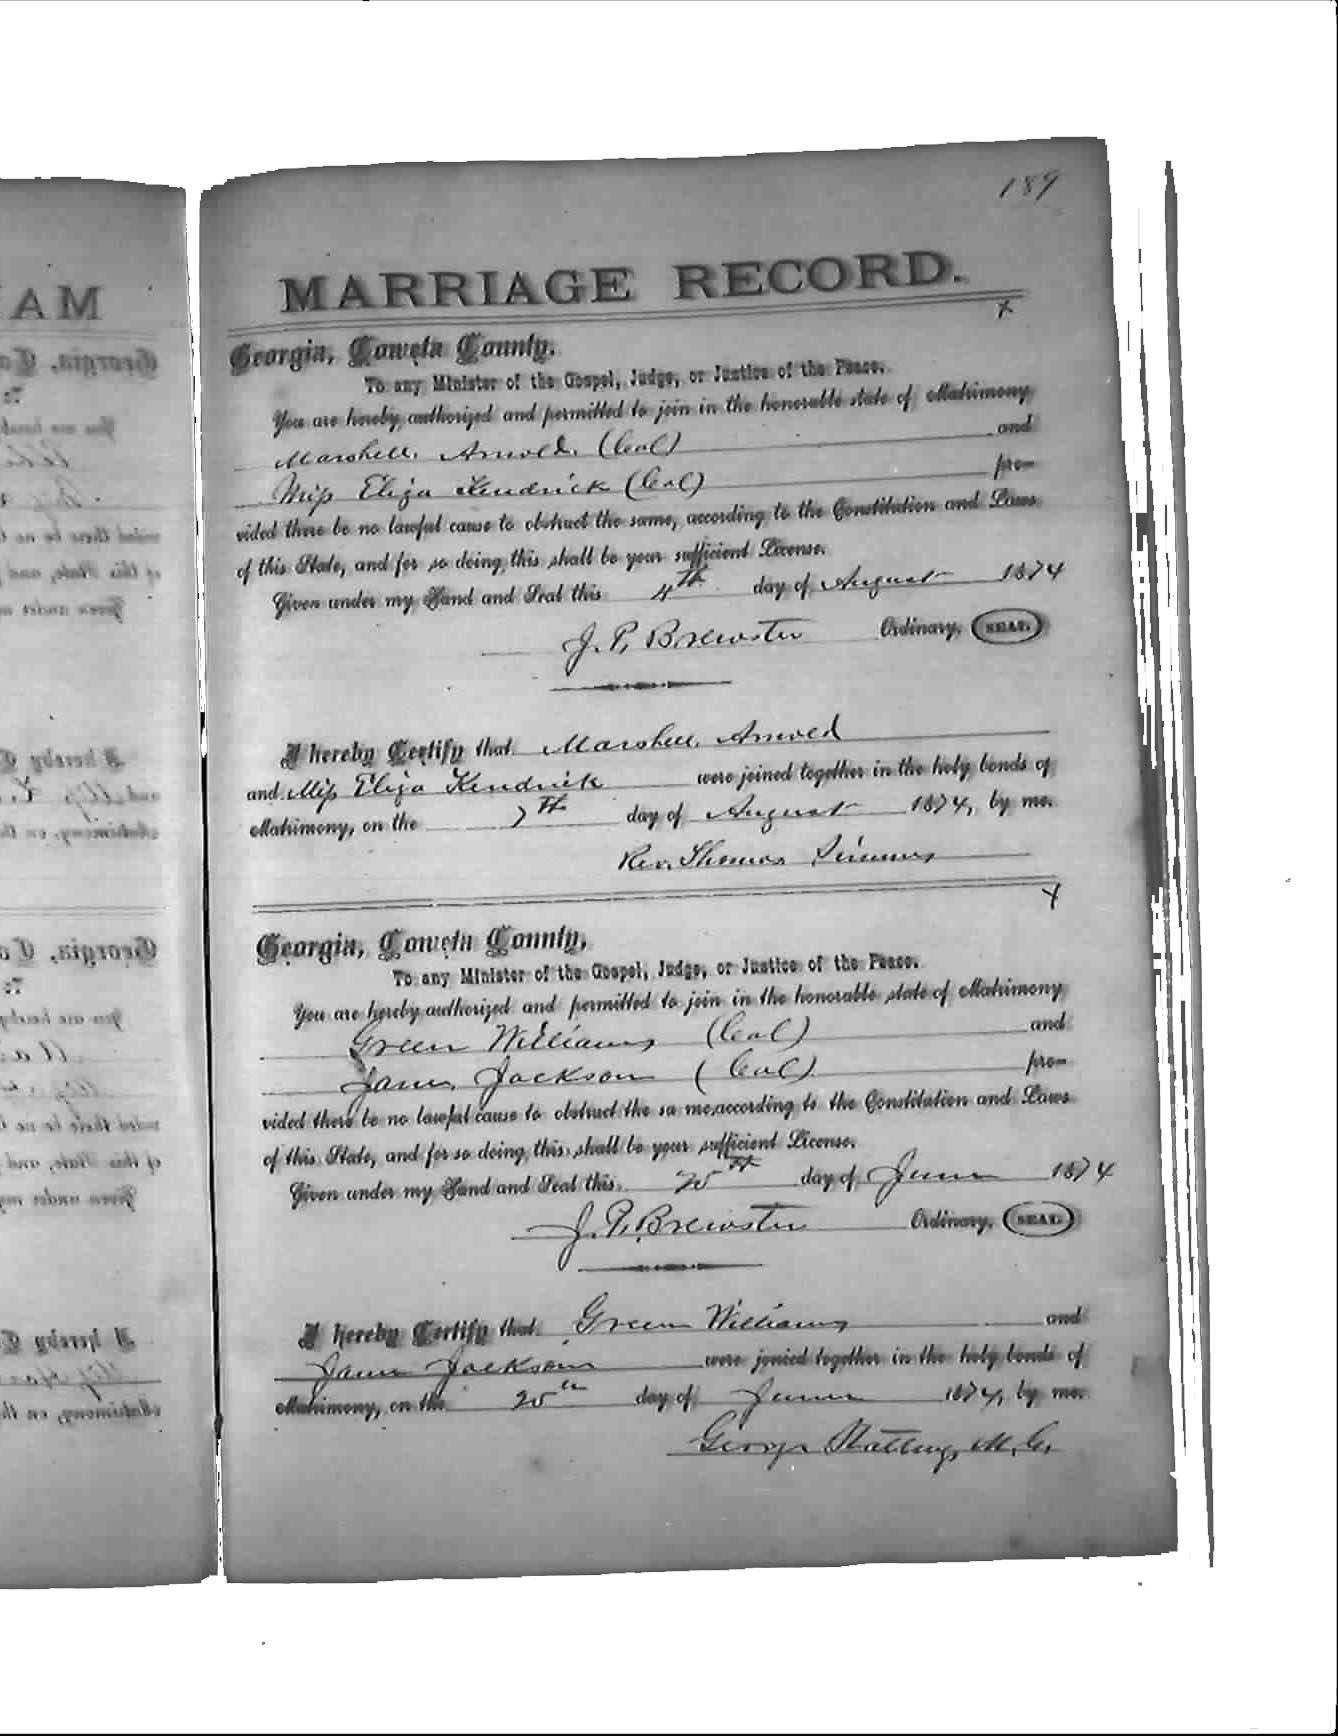 189
MARRIAGE RECORD.
Georgia, Coweta County.
To any Minister of the Gospel, Judge, or Justice of the Peace.
You are hereby authorized and permitted to join in the honorable state of Matrimony
Marshell Arnold (Col) and
Miss Eliza Kendrick (Col) pro-
vided there be no lawful cause to obstruct the same, according to the Constitution and Laws
of this State, and for so doing this shall be your sufficient License.
Given under my Hand and Seal this 4th day of August 1874
J. P. Brewster Ordinary, SEAL.
I hereby Certify that Marshell Arnold
and Miss Eliza Kendrick were joined together in the holy bonds of
Matrimony, on the 7th day of August 1874, by me.
Rev. Thomas Simms
Georgia, Coweta County,
To any Minister of the Gospel, Judge, or Justice of the Peace.
You are hereby authorized and permitted to join in the honorable state of Matrimony
Green Williams (Col) and
Jane Jackson (Col) pro-
vided there be no lawful cause to obstruct the sa me,according to the Constitution and Laws
of this State, and for so doing this shall be your sufficient License.
Given under my Hand and Seal this 25th day of June 1874
J. P. Brewster Ordinary, SEAL.
I hereby Certify that Green Williams and
Jane Jackson were jonied together in the holy bonds of
Matrimony, on the 25th day of June 1874, by me.
George Stallings M. G.